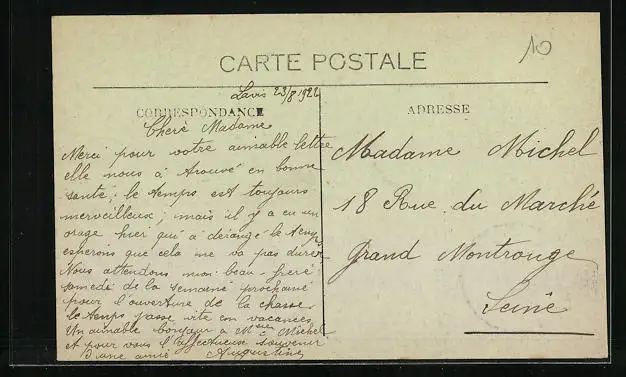 CARTE POSTALE
10
Lavis 23/8 1922
CORRESPONDANCE
ADRESSE
Chere Madame
Merci pour votre aimable lettre
elle nous à trouvé en bonne
santé, le temps est toujours
merveilleux; mais il y a eu un
orage hier qui à dérangé le temps
esperons que cela ne va pas durer
Nous attendons mon beau-frere
samedi de la semaine prochaine
pour l'ouverture de la chasse,
le temps passe vite en vacances
Un aimable bonjour à Msieu Michel
et pour vous l'affectueux souvenir
d'une amie Augustine
Madame Michel
18 Rue du Marché
Grand Montrouge
Seine